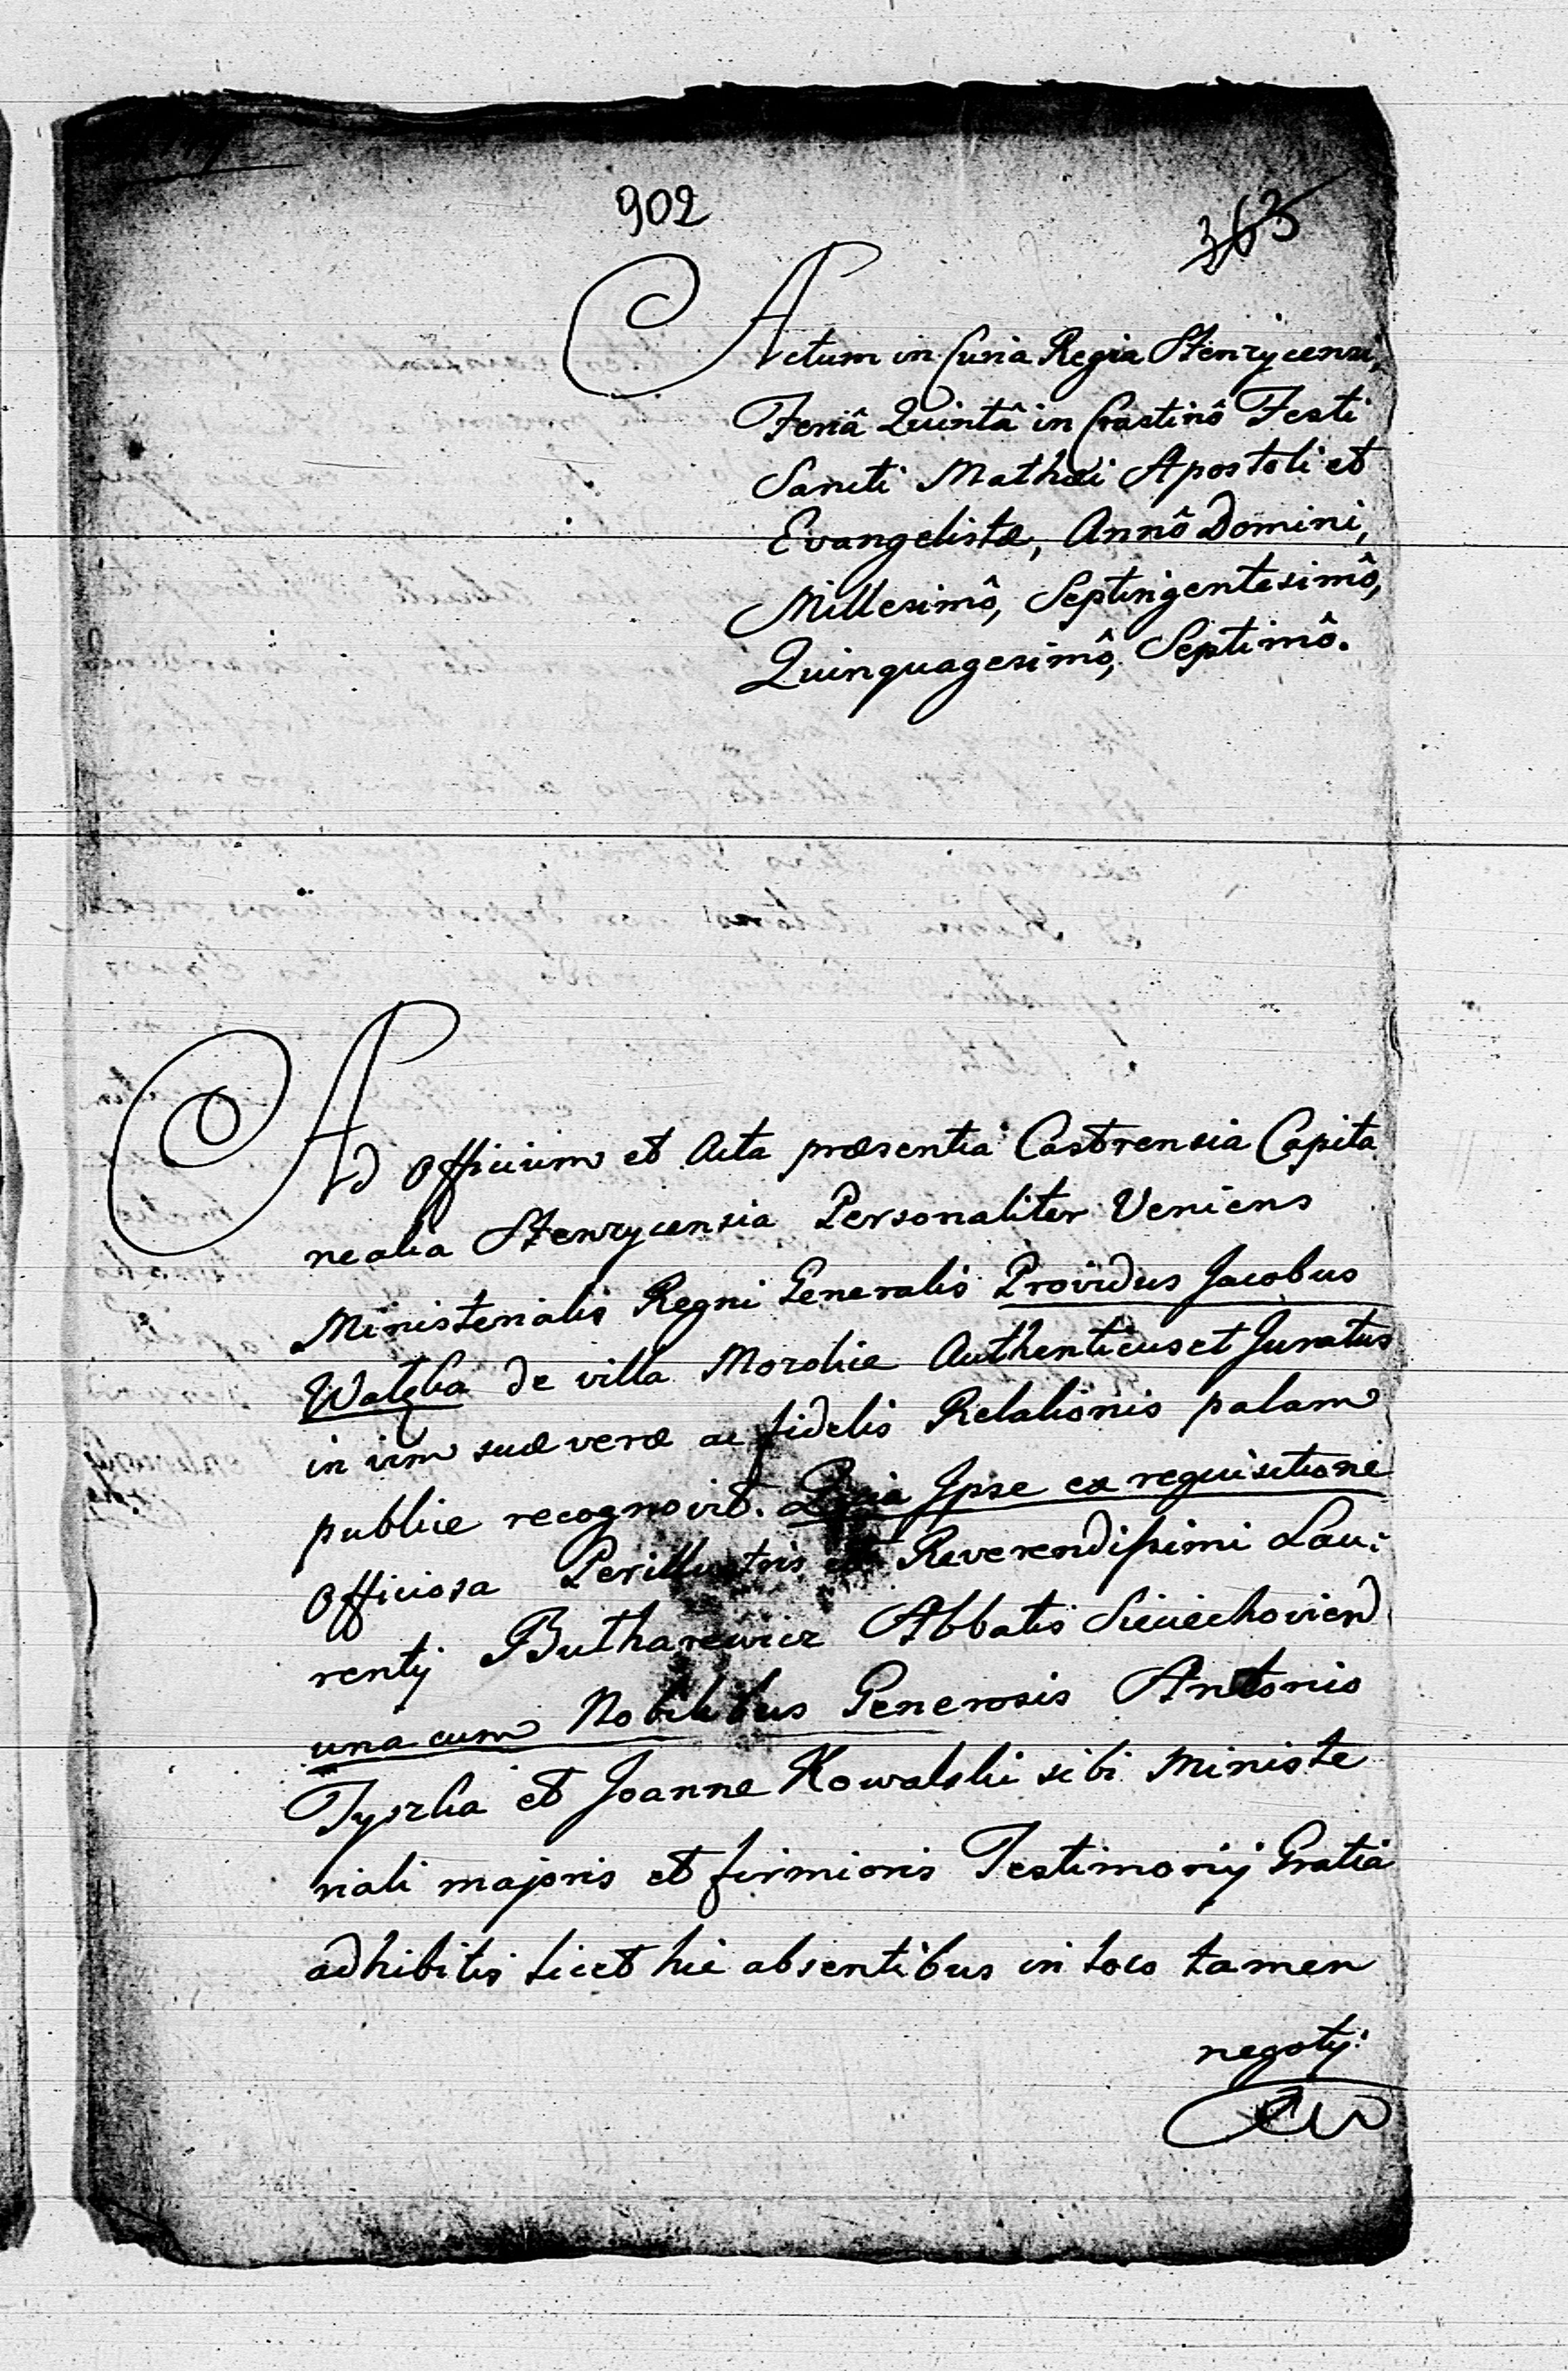 902
363
Actum in Curia Regia Stenzycensi,
Feriâ Quintâ in Crastinô Festi
Sancti Mathæi Apostoli et
Evangelistæ, Annô Domini,
Millesimô, Septingentesimô,
Quinquagesimô, Septimô.
Ad Officium et Acta præsentia Castrensia Capita
nealia Stenzycensia Personaliter Veniens
Ministerialis Regni Generalis Providus Jacobus
de villa Authenticus et Juratus
in vim suæ veræ ac fidelis Relationis palam
publice recognovit. Quia Ipse ex requisitione
Officiosa Perillustris et Reverendissimi Lau:
rentij Butharewicz Abbatis Sieciechovien
una cum Nobilibus Generosis Antonio
Tyszka et Joanne Kowalski sibi Ministe
riali majoris et firmioris Testimonij Gratia
adhibitis licet hic absentibus in loco tamen
negotij